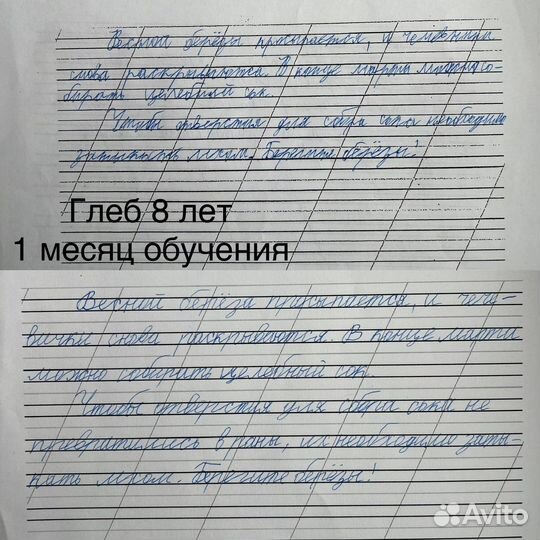 Весной берёза просыпается, и чечевички
снова раскрываются. В конце марта можно со-
бирать целебный сок.
Чтобы отверстия для сбора сока необходимо
затыкать мхом. Берегите берёзы!
Глеб 8 лет
1 месяц обучения
Весной берёза просыпается, и чече-
вички снова раскрываются. В конце марта
можно собирать целебный сок.
Чтобы отверстия для сбора сока не
превратились в раны, их необходимо заты-
кать мхом. Берегите берёзы!
Avito